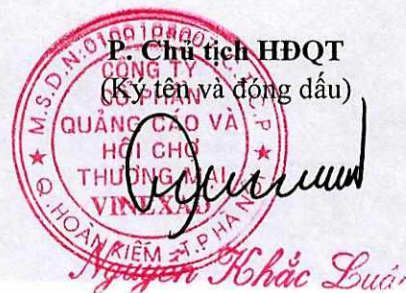 P. Chủ tịch HĐQT
(Ký tên và đóng dấu)
CÔNG TY
CỔ PHẦN
QUẢNG CÁO VÀ
HỘI CHỢ
THƯƠNG MẠI
VINEXAD
Q. HOÀN KIẾM - T.P HÀ NỘI
Nguyễn Khắc Luận